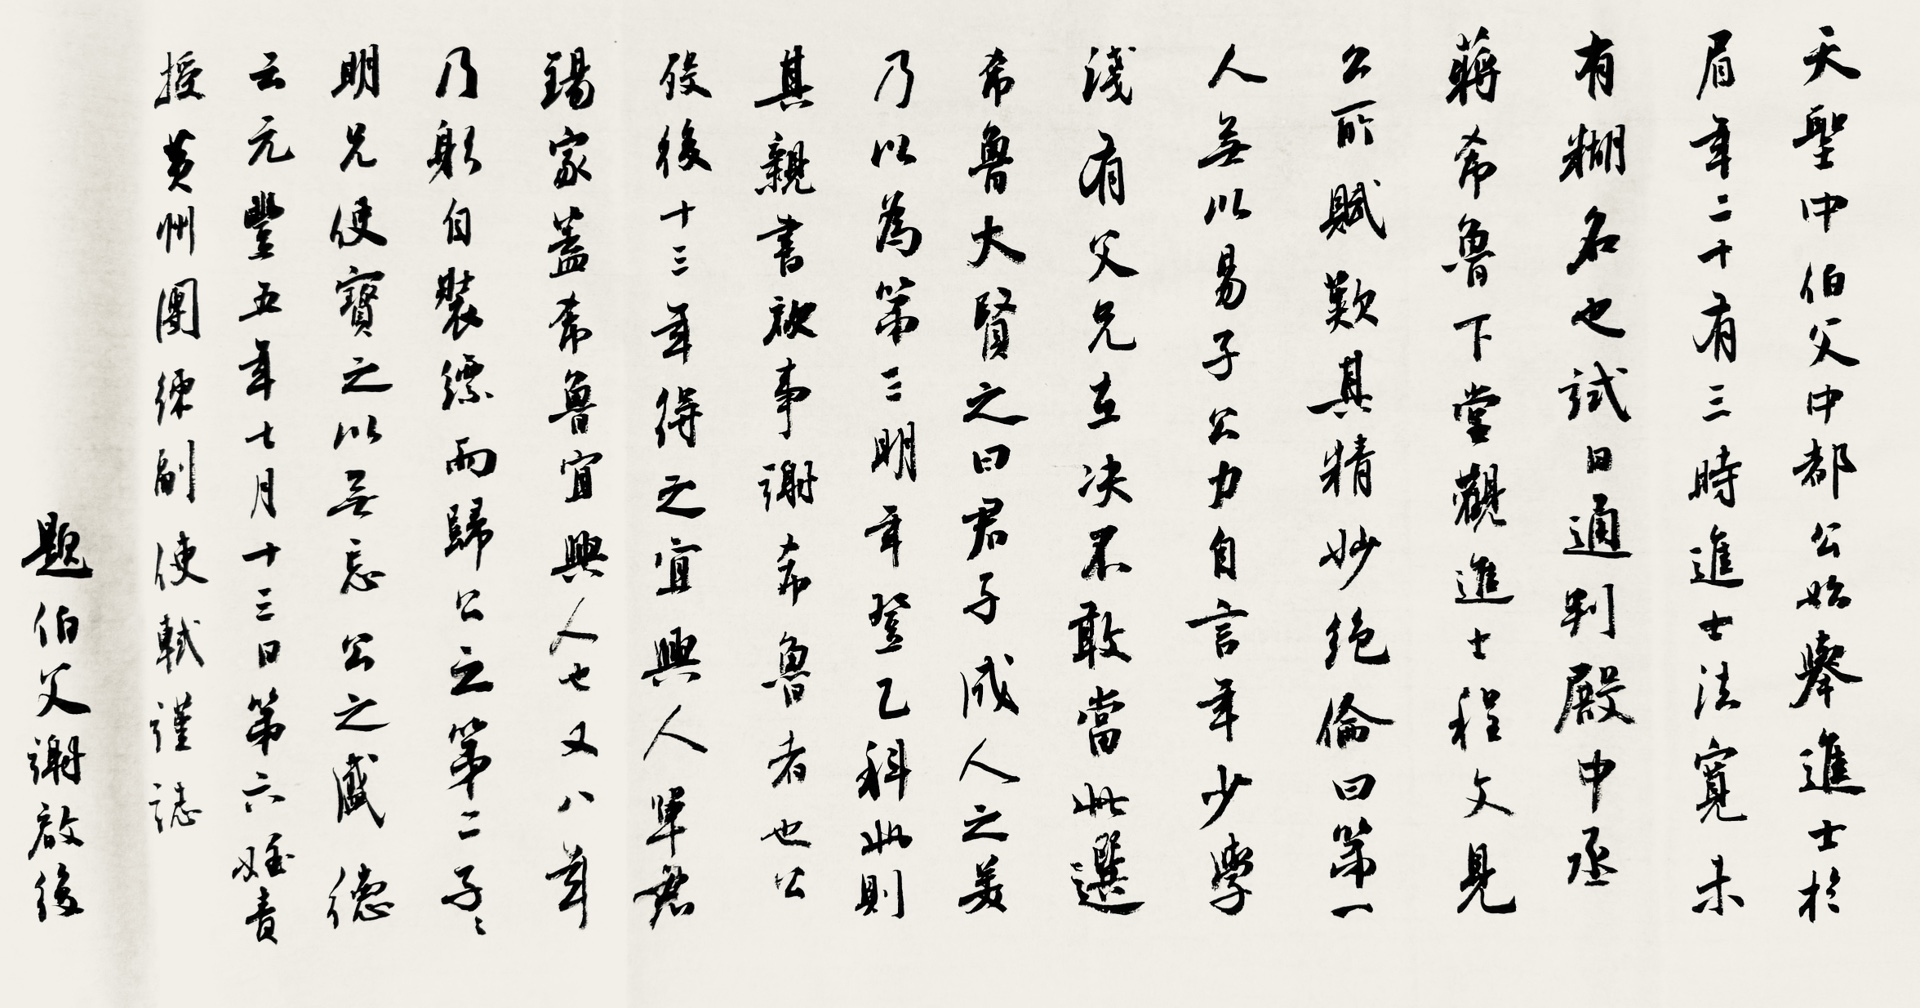 天聖中伯父中都公始舉進士於
眉年二十有三時進士法寬未
有糊名也試日通判殿中丞
蔣希魯下堂觀進士程文見
公所賦歎其精妙絕倫曰第一
人無以易子公力自言年少學
淺有父兄在決不敢當此選
希魯大賢之曰君子成人之美
乃以為第三明年登乙科此則
其親書啟事謝希魯者也公
歿後十三年得之宜興人單君
錫家蓋希魯宜興人也又八年
乃躬自裝縹而歸公之第二子子
明兄使寶之以無忘公之盛德
云元豐五年七月十三日第六姪責
授黃州團練副使軾謹誌
題伯父謝啟後